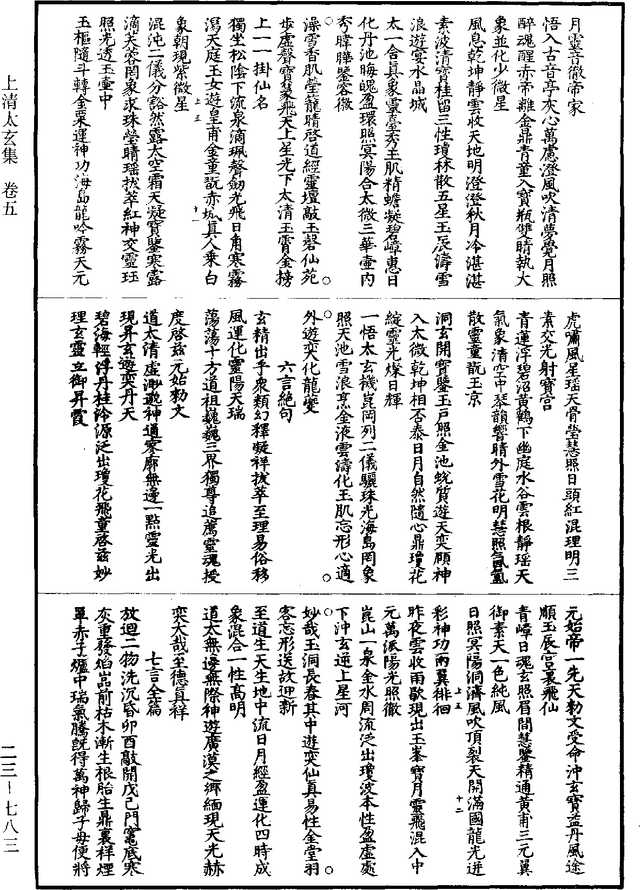 月靈善徹帝家
悟入古音亭灰心萬慮澄風吹清夢覺月照
醉魂醒赤帝離金鼎青童入寶瓶雙睛執大
象並化少微星
風息乾坤靜雲收天地明澄澄秋月冷湛湛
素波清寶桂留三性瓊林散五星玉辰濤雪
浪遊宴水晶城
太一合真象靈臺秀玉肌精蟾凝碧嶂惠日
化丹池晦魄盈環照冥陽合太微三華壷内
秀曄曄鑒客微
澡雪香肌瑩朧晴啓道經靈壇敲玉磬仙苑
步虛聲寶篆飛天上星光下太清玉霄金榜
上一一掛仙名
獨坐松陰下流泉滴珮聲劒光飛日角寒霧
瀉天庭玉女遊皇甫金童翫赤城真人乗白
象朝現紫微星
混沌二儀分谿然露太空霜天凝寶鑒寒露
滴芙蓉罔象求珠瑩晴瑶拔萃紅神交靈珏
照光透玉壷中
玉樞隨斗轉金粟運神功海島龍吟霧天元
虎嘯風星瑶天骨瑩慧照日頭紅混理明三
素交光射寶宫
青蓮浮碧沼黄鶴下幽庭水谷雲根靜瑶天
氣象清空中琴韻響晴外雪花明慧照氤氲
散靈童翫玉京
洞玄開寶鑒玉戸照金池蜕質遊天奕頤神
入太微乾坤相否泰日月自然隨心鼎瓊花
綻靈光燦日輝
一悟太玄機崑岡列二儀驪珠光海島罔象
照天池雪浪烹金液雲濤化玉肌忘形心適
外遊奕化龍夔
六言絶句
玄精出乎衆類幻釋凝祥拔萃至理易俗移
風運化靈陽天瑞
蕩蕩十方道祖巍巍三界獨尊追薦靈魂授
度啓兹元始勑文
道太清虛渺邈神通寥廓無邊一點靈光出
現昇玄遊奕丹天
碧海輕浮丹桂泠源泛出瓊花飛童啓兹妙
理玄靈立御昇霞
元始帝一先天勑文受命沖玄寶益丹風途
順玉辰宫裏飛仙
青嶂日魂玄照眉間慧鑒精通黄甫三元翼
御素天一色純風
日照冥陽洞濟風吹頂裂天開滿國龍光迸
彩神功兩翼徘徊
昨夜雲收雨歇現出玉峯寶月靈飛混入中
元萬派陽光照徹
崑山一泉金水周流泛出瓊波本性盈虛處
下沖玄逆上星河
妙哉玉洞長春其中遊奕仙真易性金堂羽
客忘形送故迎新
至道生天生地中流日月經盈運化四時成
象混合一性髙明
道太無邊無際神遊廣漠之鄉緬現天光赫
奕大哉至德真祥
七言全篇
放迴二物洗沉昏夘酉敲開戊己門竃底寒
灰重發焰嵓前枯木漸生根胎生鼎裏祥煙
單赤子爐中瑞氣騰旣得萬神歸子母便將
上清太玄集　卷五
二三—七八三